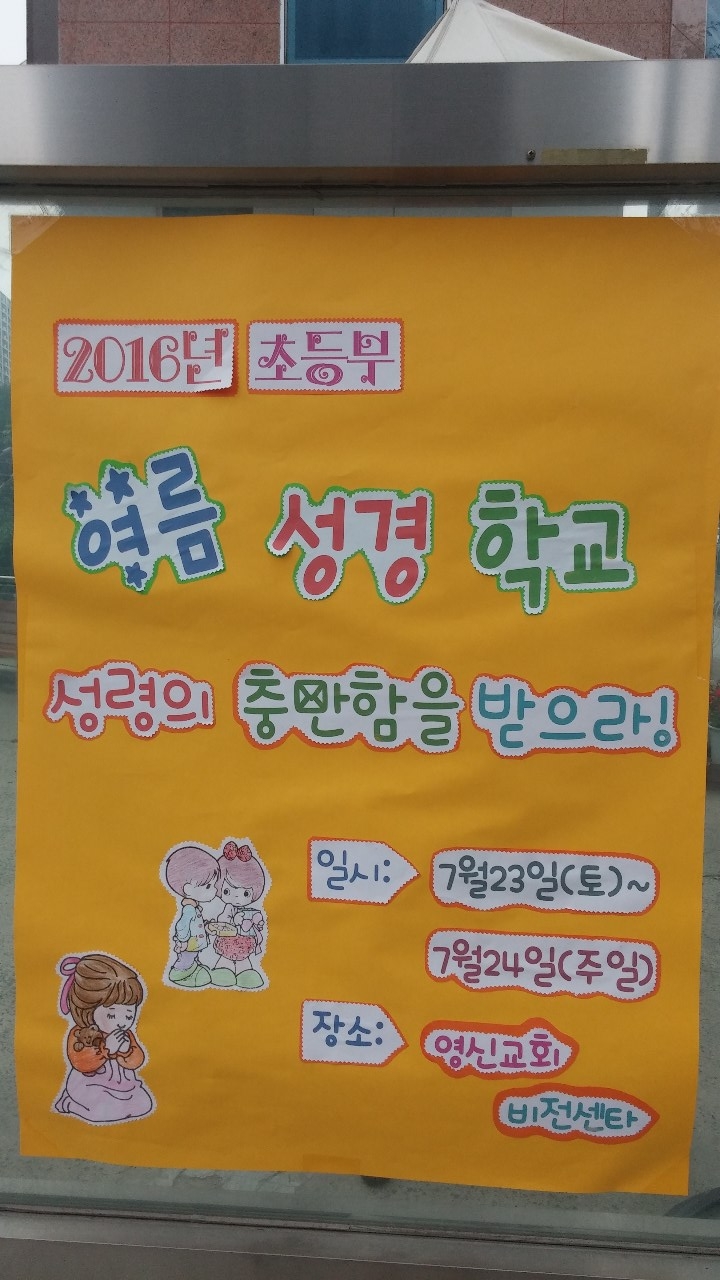 2016년 초등부
여름 성경 학교
성령의 충만함을 받으라!
일시: 7월23일(토)~
7월24일(주일)
장소: 영신교회
비전센타